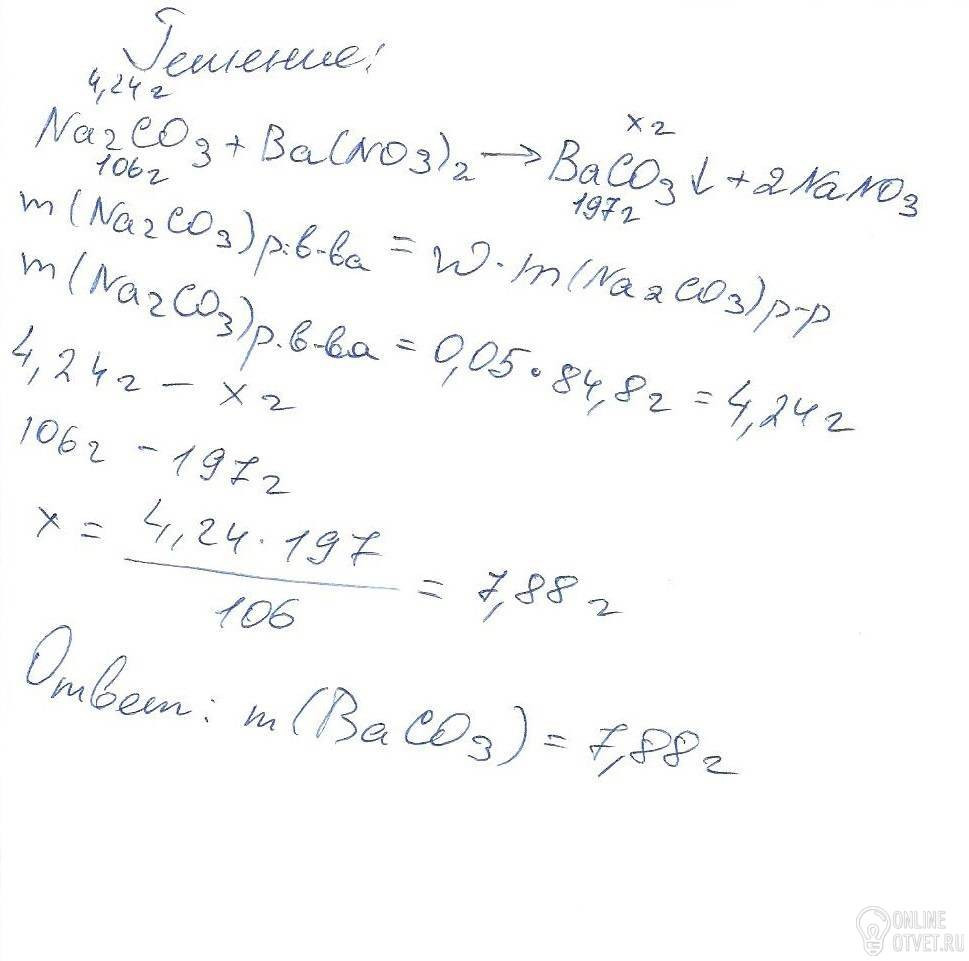 Решение:
4,24г
xг
Na2CO3 + Ba(NO3)2 → BaCO3↓ + 2NaNO3
106г
197г
m(Na2CO3)р.в-ва = W · m(Na2CO3)р-р
m(Na2CO3)р.в-ва = 0,05 · 84,8г = 4,24г
4,24г – xг
106г – 197г
x = 4,24 · 197
106
= 7,88г
Ответ: m(BaCO3) = 7,88г
ONLINE
OTVET.RU